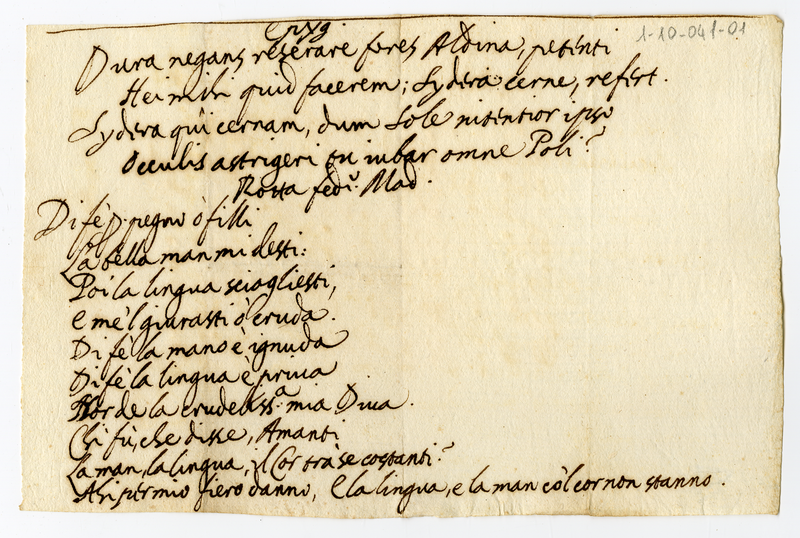 Epig.
1-10-041-01
Dura negans reserare fores Aldina, petenti
Hei mihi quid facerem; Sydera cerne, refert.
Sydera qui cernam, dum Sole nitentior ipso
Occulis astrigeri tu iubar omne Poli?
Rotta fedi. Mad.
Di fè p. pegno ò filli
La bella man mi desti:
Poi la lingua sciogliesti,
e me'l giurasti ò cruda.
Di fè la mano è ignuda
Di fè la lingua è priva
Hor de la crudeliss.a mia Diva.
Chi fù, che disse, Amanti
La man, la lingua, il Cor trà se costanti?
Ahi per mio fiero danno, E la lingua, e la man co'l cor non stanno.